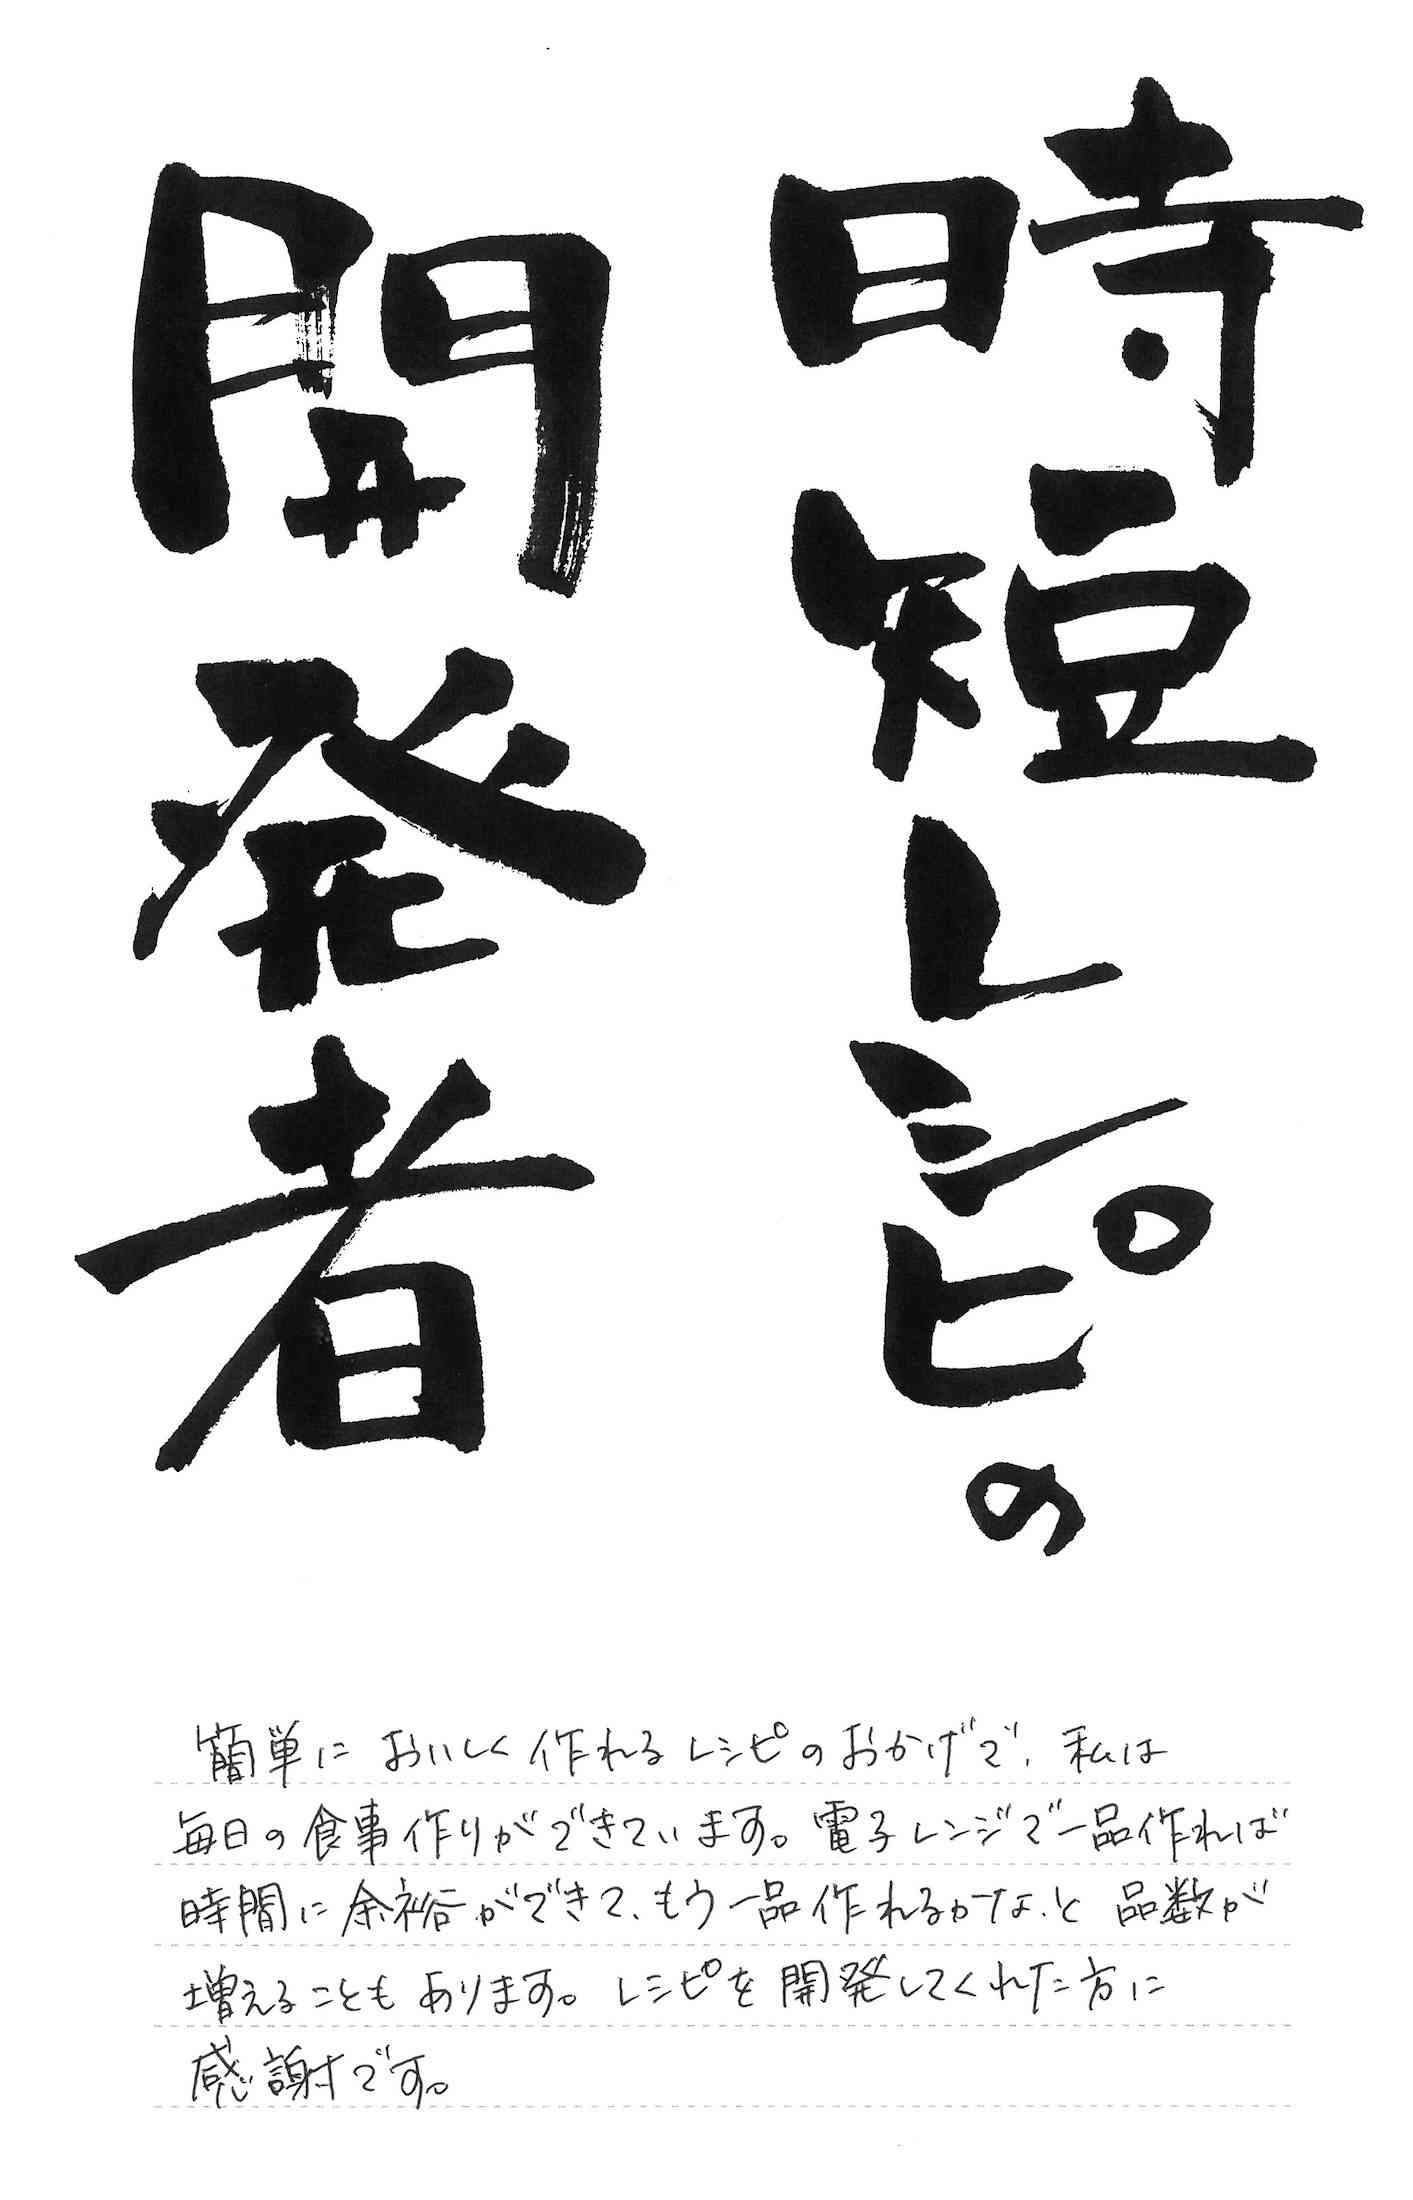 時短レシピの
開発者
簡単においしく作れるレシピのおかげで、私は
毎日の食事作りができています。電子レンジで一品作れば
時間に余裕ができて、もう一品作れるかな、と品数が
増えることもあります。レシピを開発してくれた方に
感謝です。